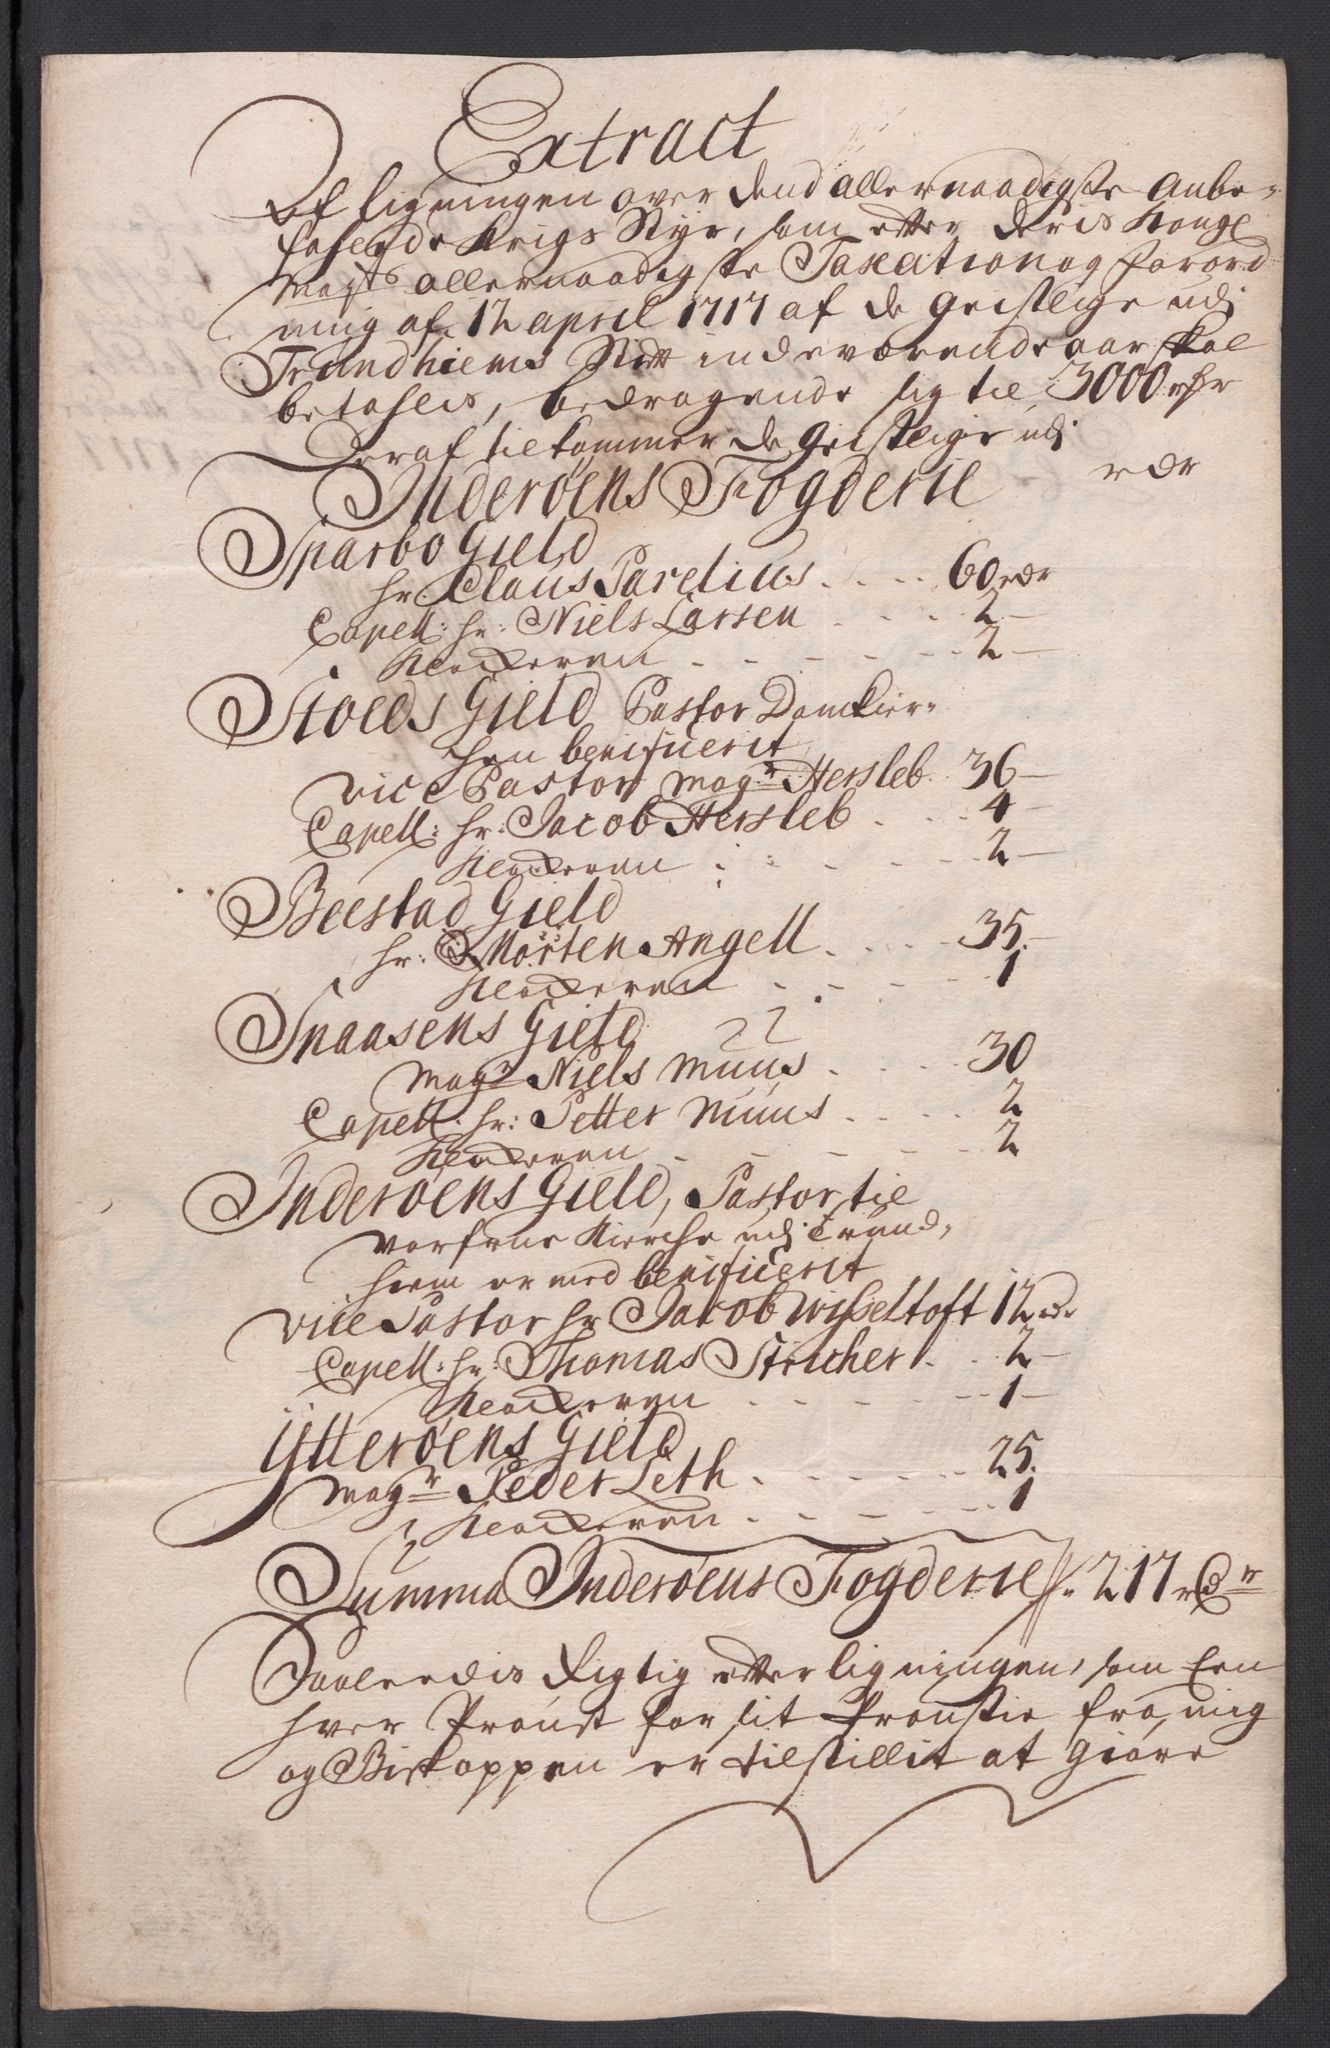 Extract
Af ligningen over dend allernaadigste anbe-
falende Krigs Styr, som etter Deris Kongl
Mayts allernaadigste Taxation og forord
ning af 12 april 1717 af de geistlige udj
Trundhiems Stift indeværende aar skal
betahlis, bedragende sig til 3000 rdr
Deraf tilkommer de geistlige udj
Inderøens Fogderie rdr
Sparbo Gield
hr: Claus Parelius . . . . 60 rdr
Capell: hr: Niels Larsen . . . . 2 —
Klocheren - - - - - - 2 —
Stoeds Gield Pastor Domkier-
hen benificerit
vice Pastor Magr Hersleb . . 36 —
Capell: hr: Jacob Hersleb . . . 4 —
Klocheren - - - - - 2 —
Beestad Gield
hr: Morten Angell . . . . 35. —
Klocheren - - - - - 1
Snaasens Gield
Magr Niels Muus . . . . 30
Capell. hr: Petter Muus . . . . 2
Klocheren - - - - - - 2
Inderøens Gield, Pastor til
Vorfrue Kierche udj Trund-
hiem er med benificerit
vice Pastor hr Jacob Wisseltoft 12 rdr
Capell: hr: Thomas Stricher . . . 2 —
Klocheren - - - - - - 1 —
Ytterøens Gield
Magr Peder Leth . - - - - 25.
Klocheren . - - - - 1
Summa Inderøens Fogderie //: 217 rdr
Saaledis Rigtig etter ligningen, som Een
hver Proust for sit Proustie fra mig
og Biskoppen er tilstillit at giøre